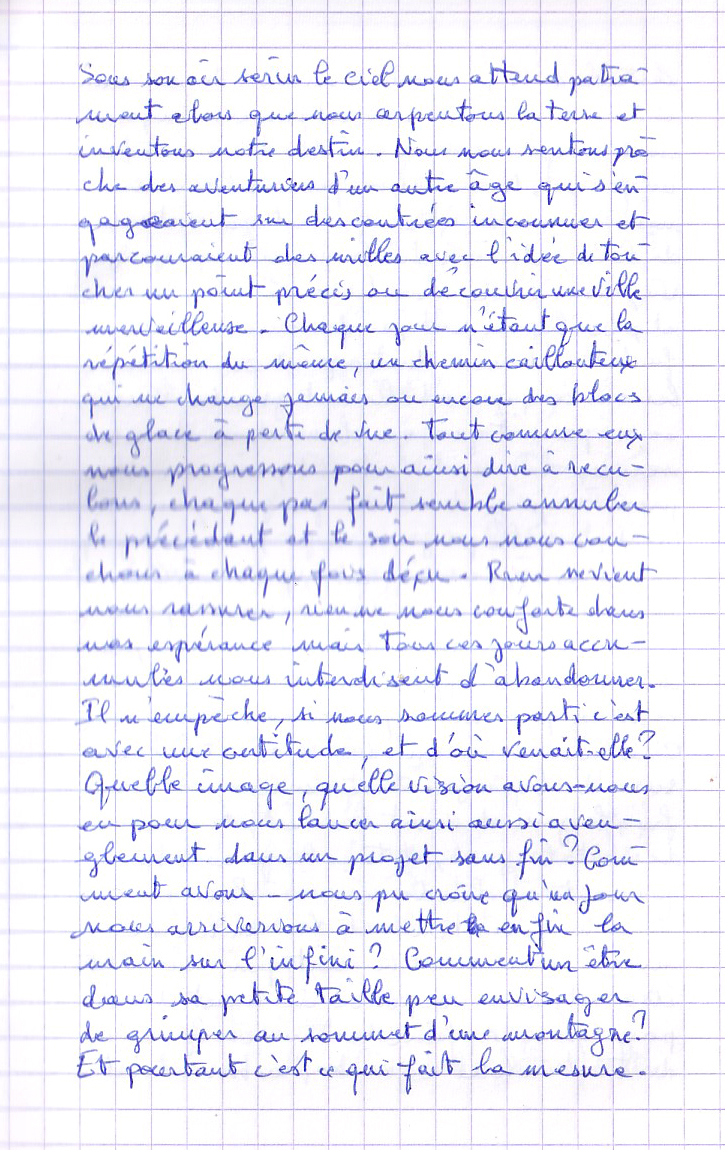 Sous son air serin le ciel nous attend patia-
ment alors que nous arpentons la terre et
inventons notre destin. Nous nous sentons pro-
che des aventuriers d'un autre âge qui s'en-
gageaient sur des contrées inconnues et
parcouraient des milles avec l'idée de tou-
cher un point précis ou découvrir une ville
merveilleuse. Chaque jour n'étant que la
répétition du même, un chemin caillouteux
qui ne change jamais ou encore des blocs
de glace à perte de vue. Tout comme eux
nous progressons pour ainsi dire à recu-
lons, chaque pas fait semble annuler
le précédant et le soir nous nous cou-
chons à chaque fois déçu. Rien ne vient
nous rassurer, rien ne nous conforte dans
nos espérance mais tous ces jours accu-
mulés nous interdisent d'abandonner.
Il n'empêche, si nous sommes parti c'est
avec une certitude, et d'où venait-elle?
Quelle image, quelle vision avons-nous
eu pour nous lancer ainsi aussi aveu-
glement dans un projet sans fin? Com-
ment avons-nous pu croire qu'un jour
nous arriverions à mettre enfin la
main sur l'infini? Comment un être
dans sa petite taille peu envisager
de grimper au sommet d'une montagne?
Et pourtant c'est ce qui fait la mesure.